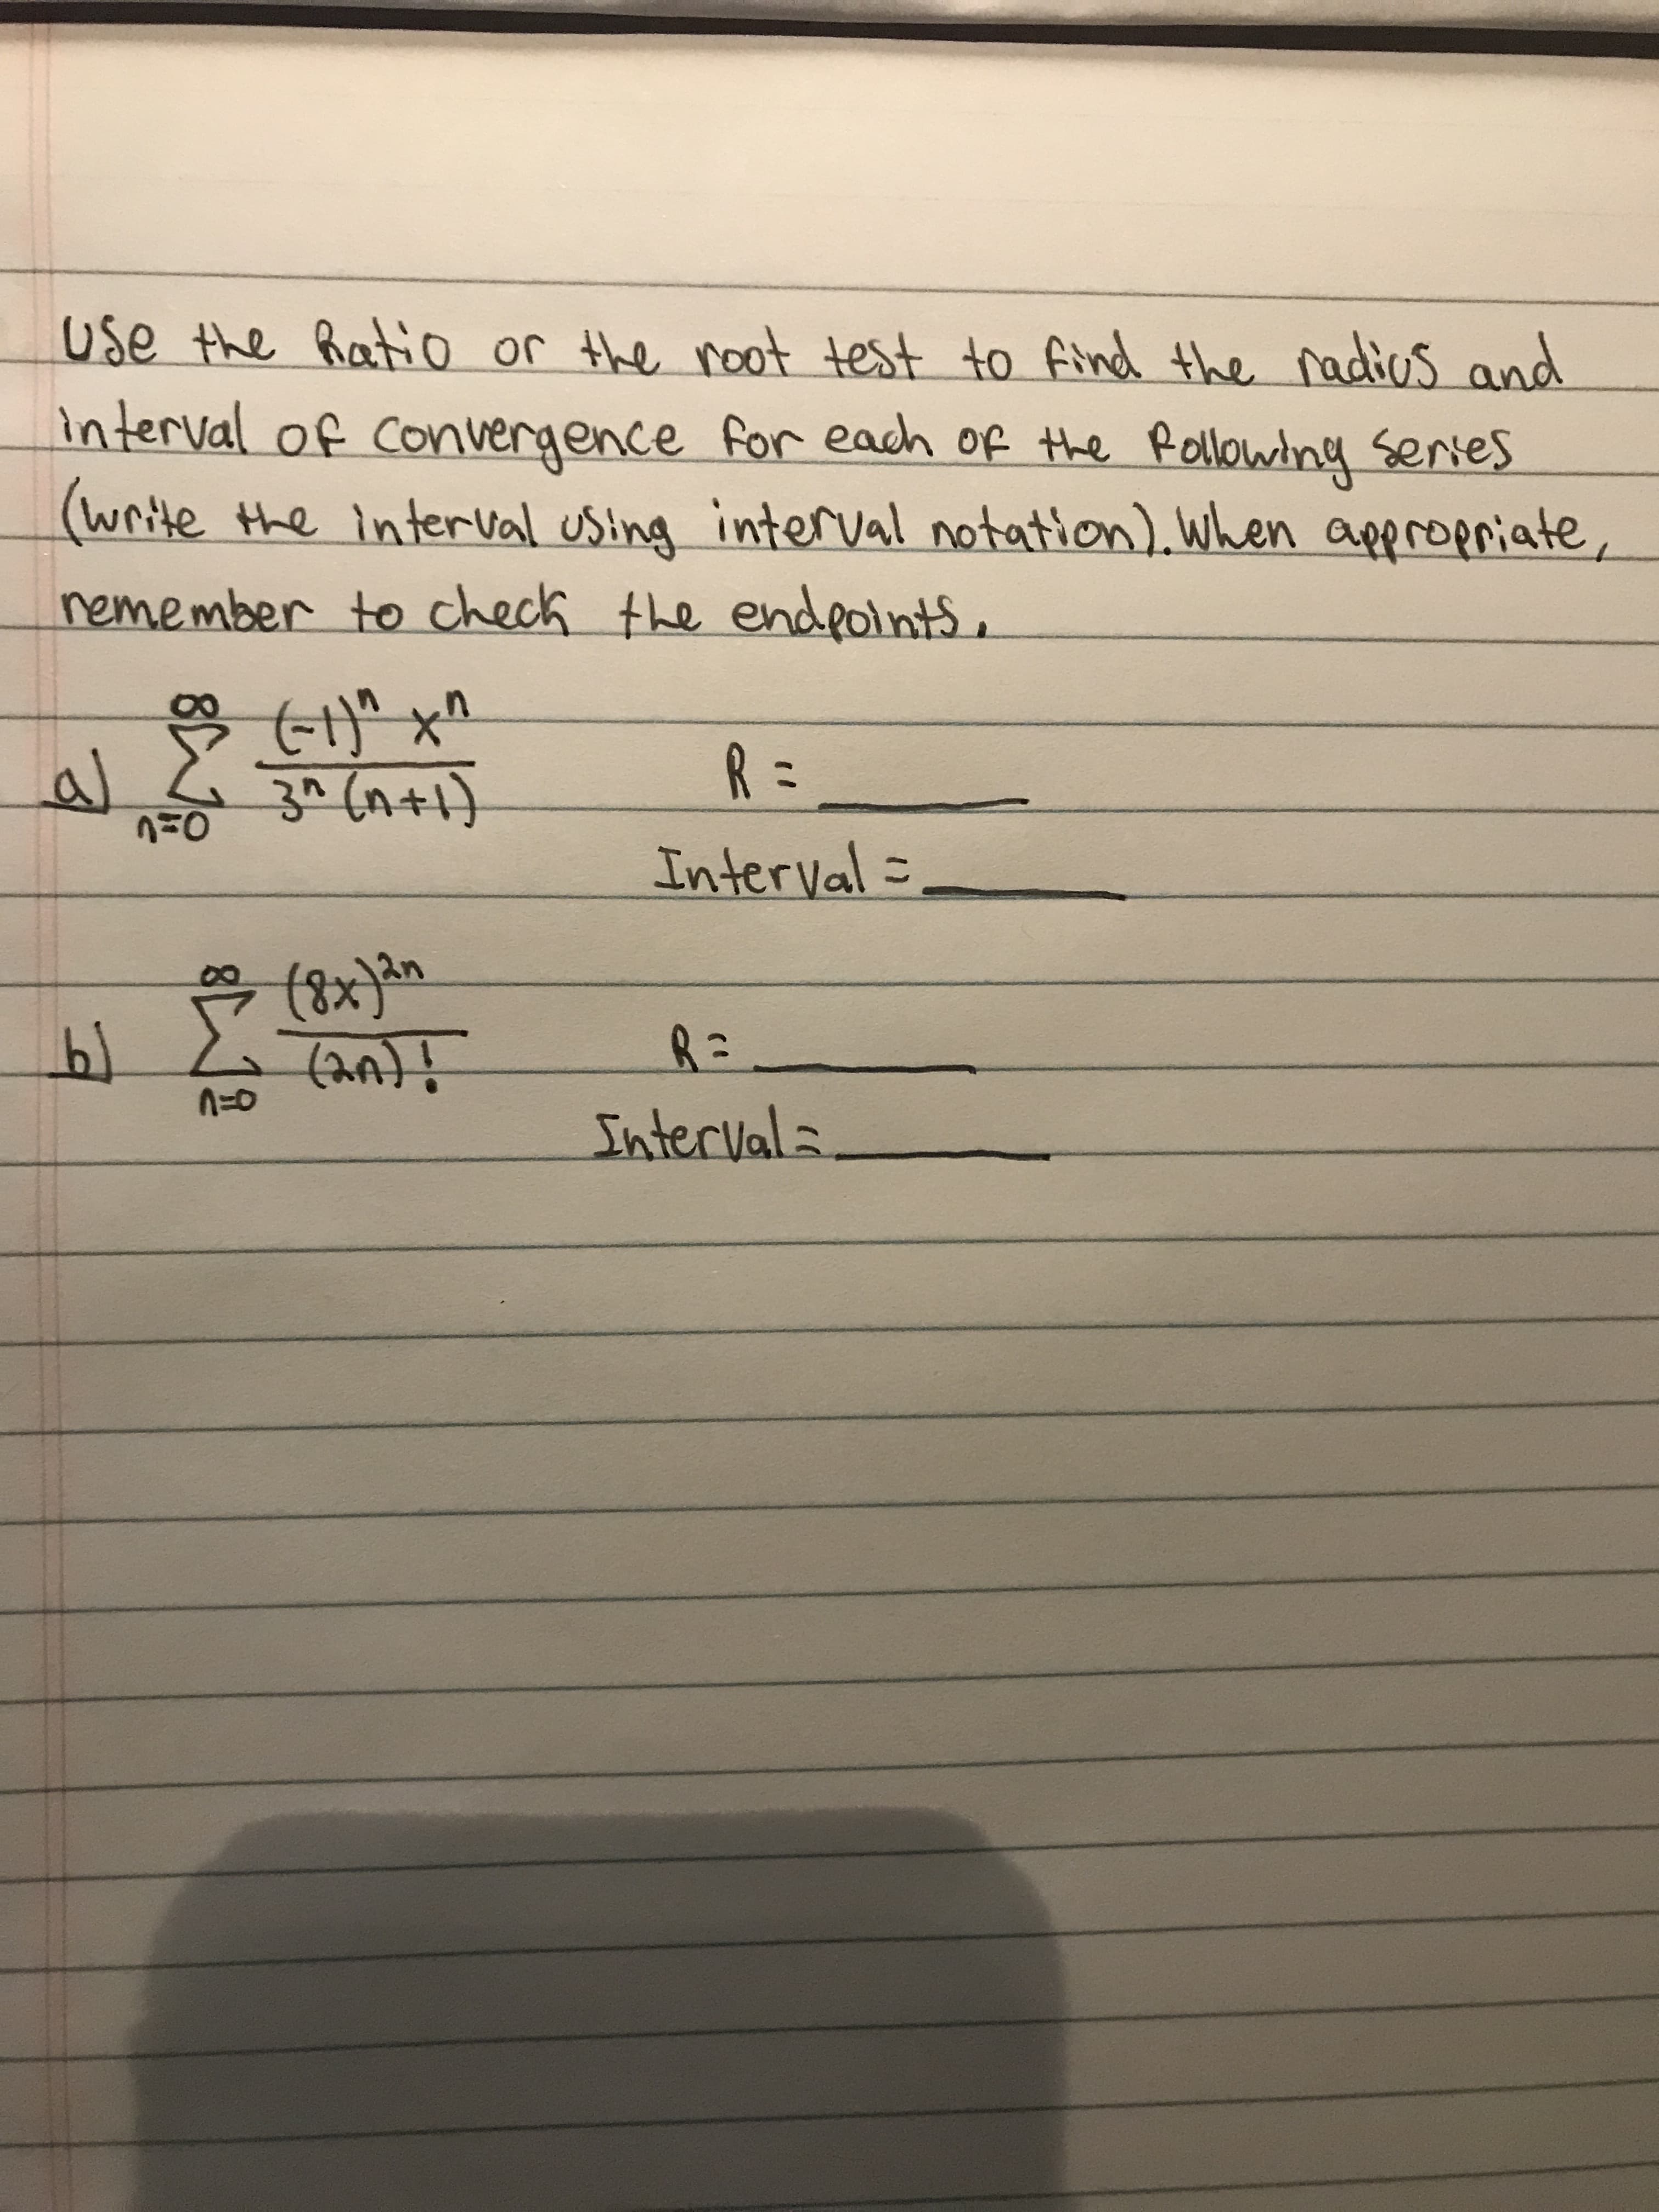 Use the Ratio or the root test to find the radius and
interval of convergence for each of the following series
(write the interval using interval notation). When appropriate,
remember to check the endpoints.
a) ∑_{n=0}^{∞} \frac{(-1)^n x^n}{3^n (n+1)} R = ____
Interval = ____
b) ∑_{n=0}^{∞} \frac{(8x)^{2n}}{(2n)!} R = ____
Interval = ____